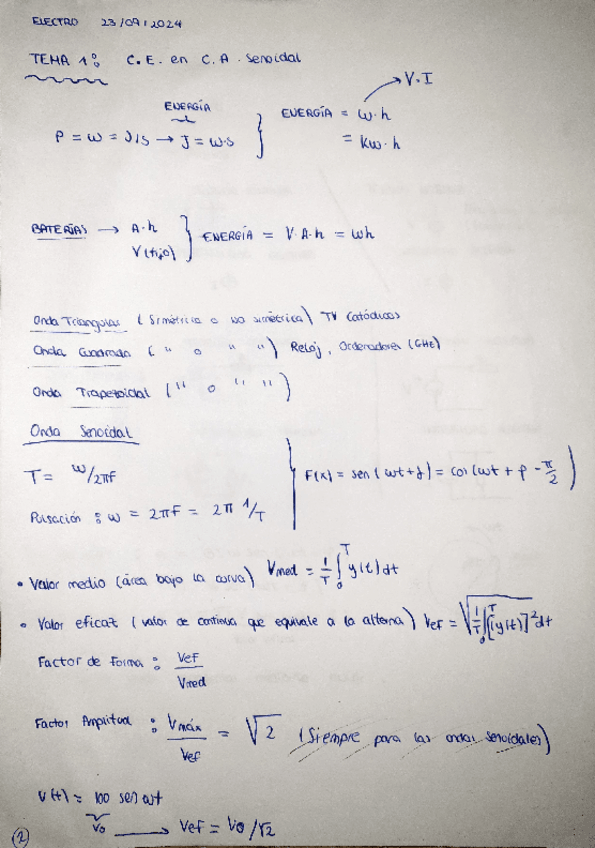 ELECTRO 23/09/2024
TEMA 1: C.E. en C.A. senoidal
V.I
ENERGÍA
P = W = J/S → J = W.S } ENERGÍA = W.h
= KW.h
BATERÍAS → A.h
V(tip) } ENERGÍA = V.A.h = Wh
Onda Triangular (Simétrica o no simétrica) TV Catódicas
Onda Cuadrada (" o " ") Reloj, Ordenadores (GHz)
Onda Trapezoidal (" o " ")
Onda Senoidal
T = W/2πF
F(x) = sen(wt+f) = cos(wt + φ - π/2)
Pulsación : w = 2πF = 2π 1/T
• Valor medio (área bajo la curva) Vmed = 1/T ∫₀ᵀ y(t) dt
• Valor eficaz (valor de continua que equivale a la alterna) Vef = √(1/T ∫₀ᵀ [y(t)]² dt
Factor de forma : Vef/Vmed
Factor Amplitud : Vmáx/Vef = √2 (Siempre para las ondas senoidales)
V(t) = 100 sen wt
V₀ → Vef = V₀/√2
2